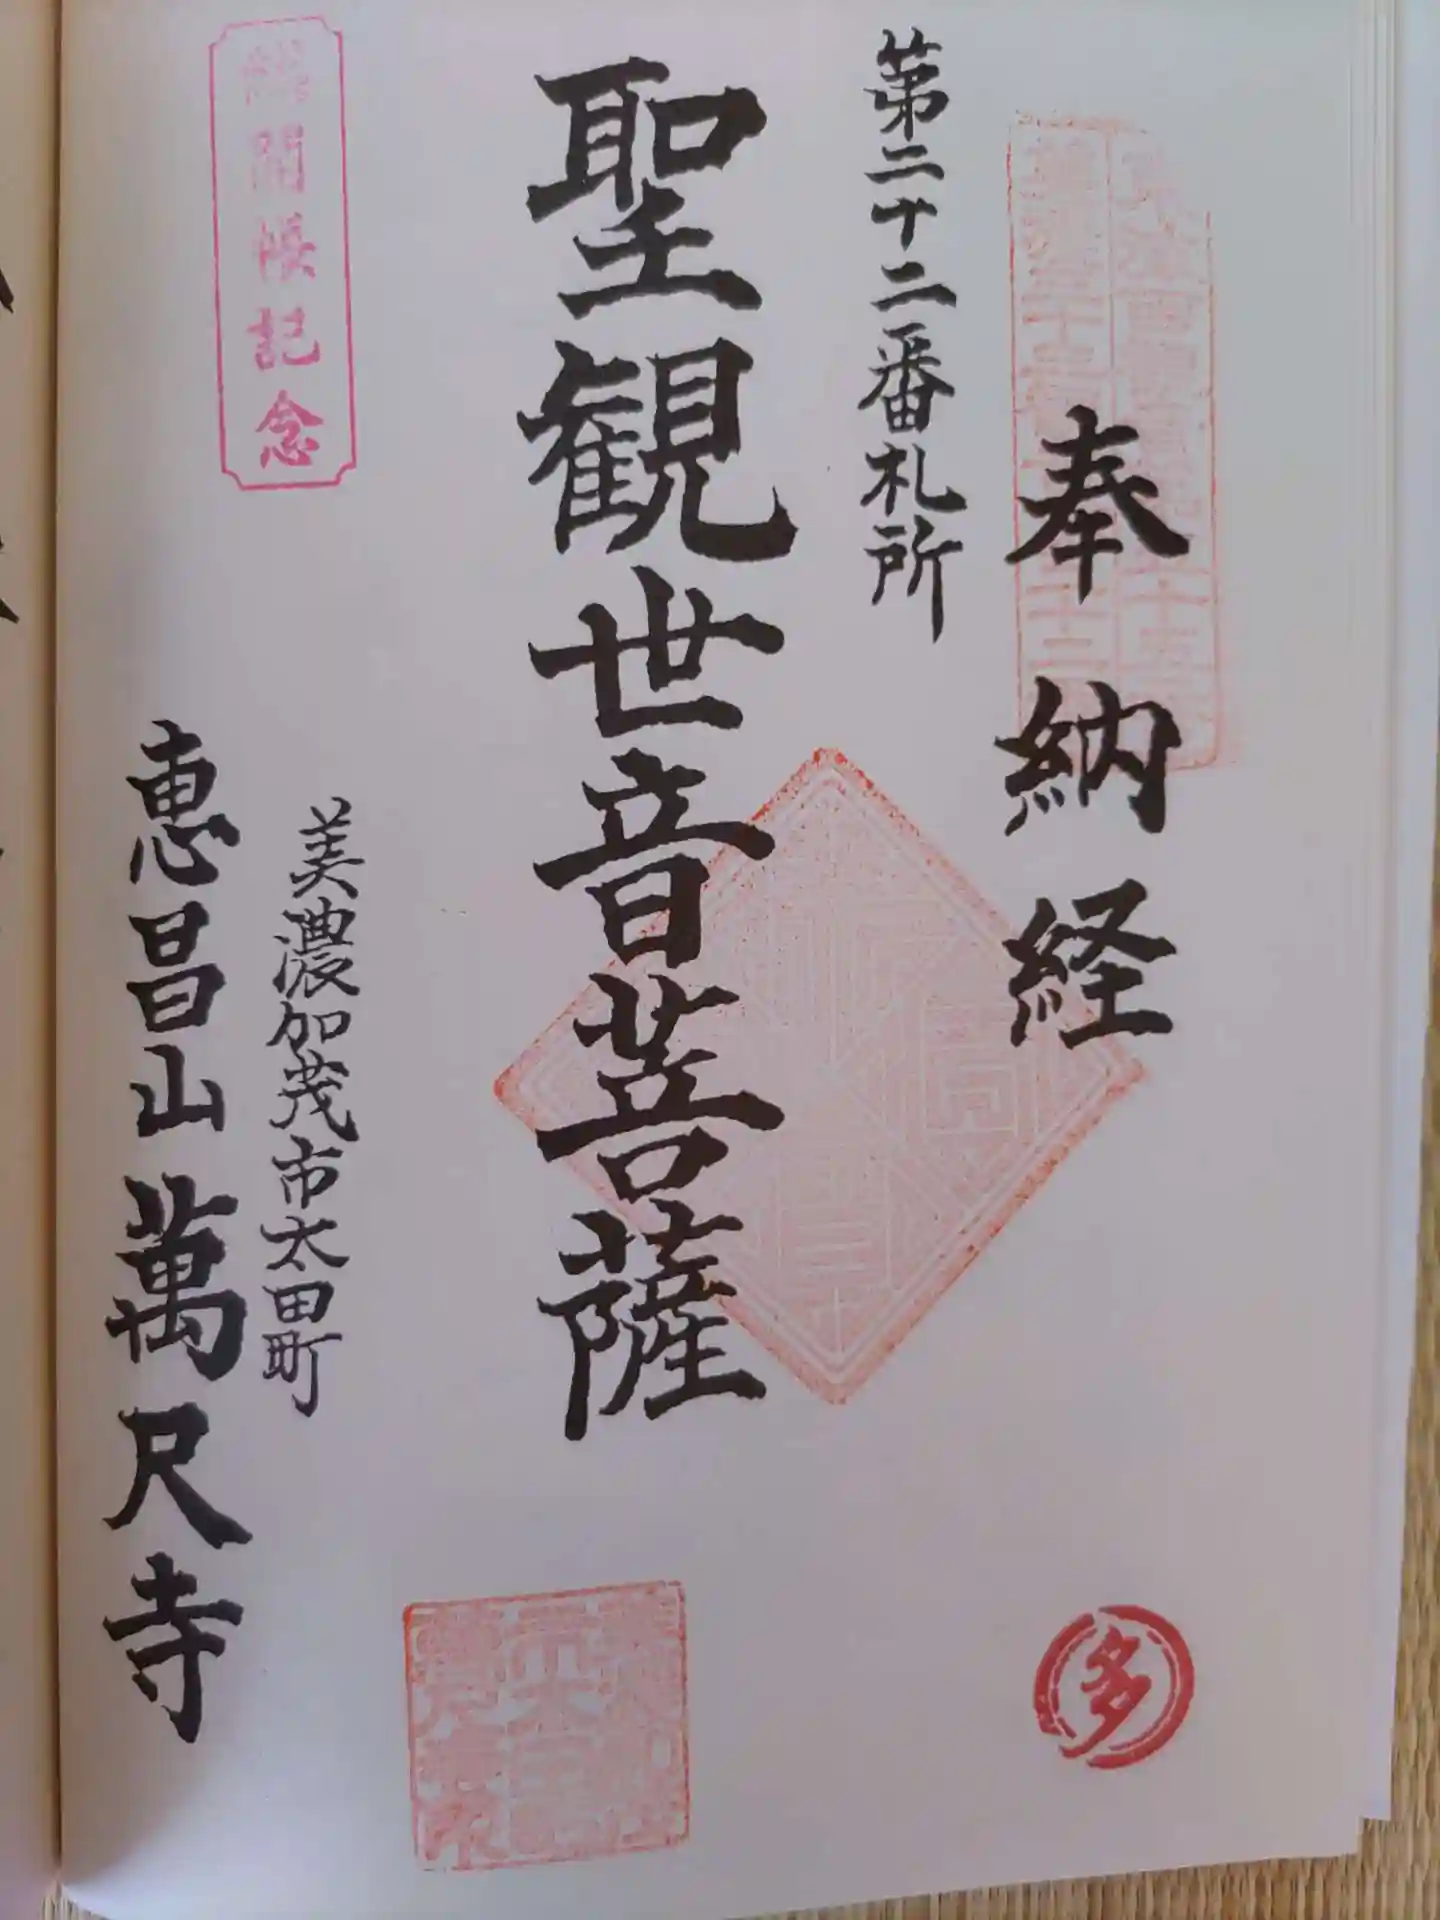 奉納経
第二十二番札所
聖観世音菩薩
總開帳記念
美濃加茂市太田町
恵昌山萬尺寺
多